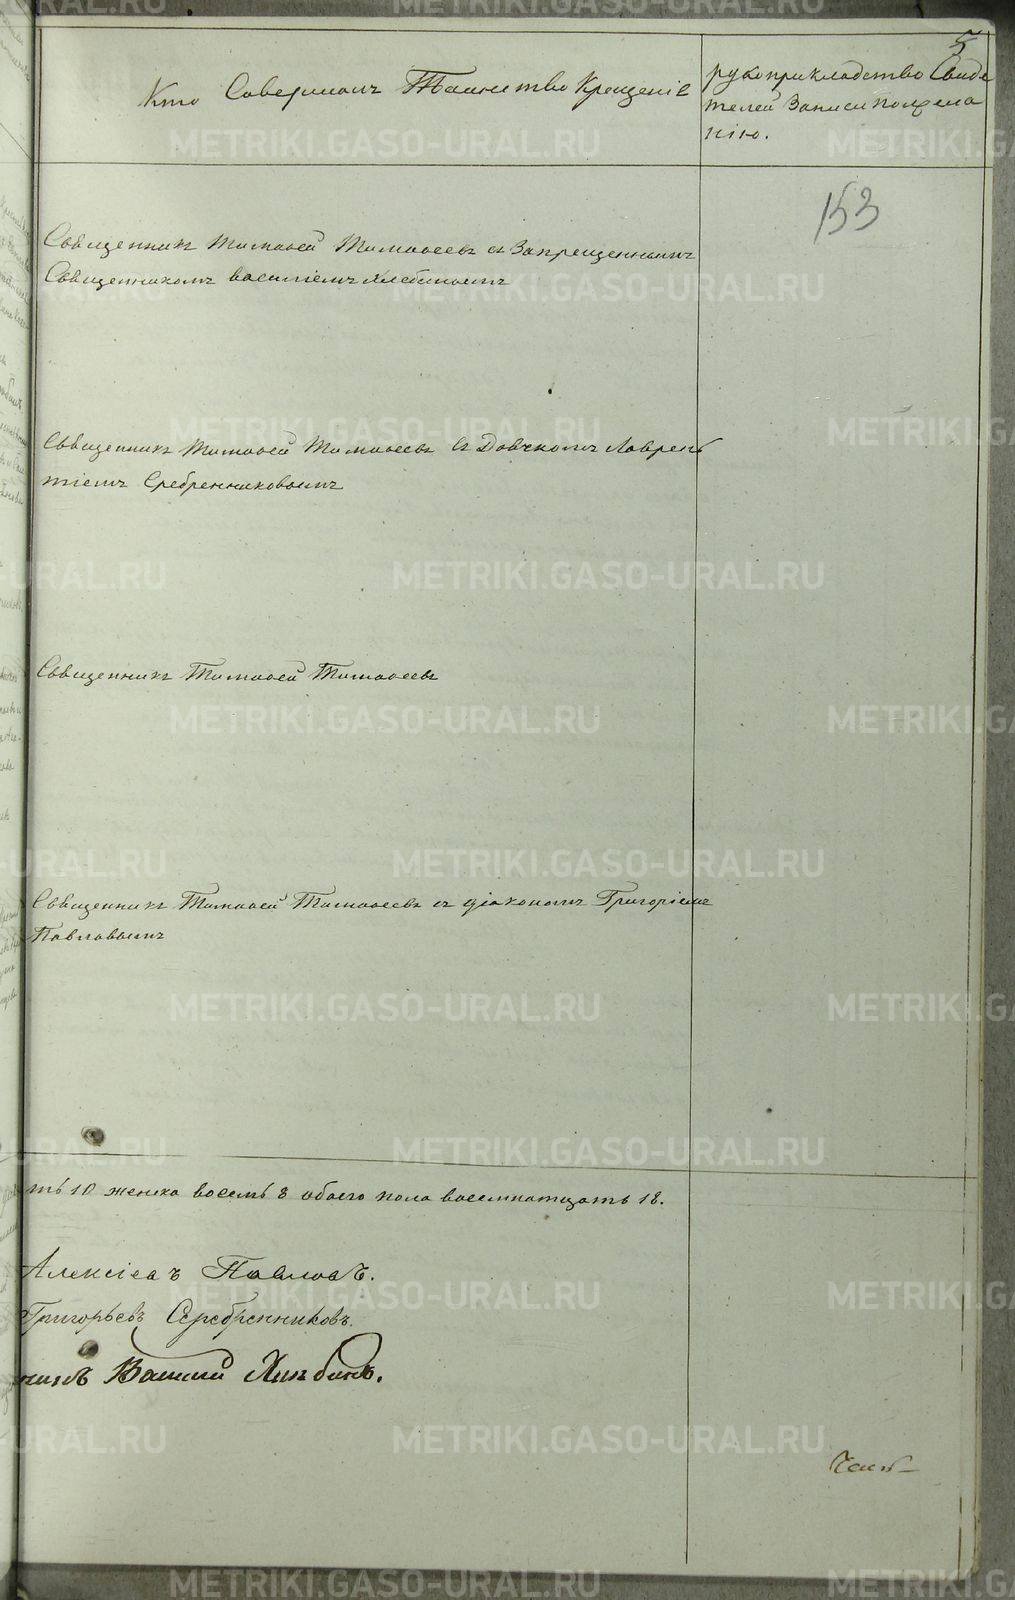 5
Кто Совершалъ Таинство Крещенiе
рукоприкладство Свиде
телей Записи пожела
нiю.
153
Священникъ Тимофей Тимофеевъ съ Запрещеннымъ
Священникомъ василiемъ хлебинымъ
Священникъ Тимофей Тимофеевъ съ Дьячкомъ Лаврен
тiемъ Сребренниковымъ
Священникъ Тимофей Тимофеевъ
Священникъ Тимофей Тимофеевъ съ дiакономъ Григорiемъ
Павловымъ
ть 10 женска восемь 8 обоего пола восемнатцать 18.
Алексiевъ Павловъ.
Григорьевъ Серебренниковъ.
никъ Василий Хлебинъ.
Часть
METRIKI.GASO-URAL.RU